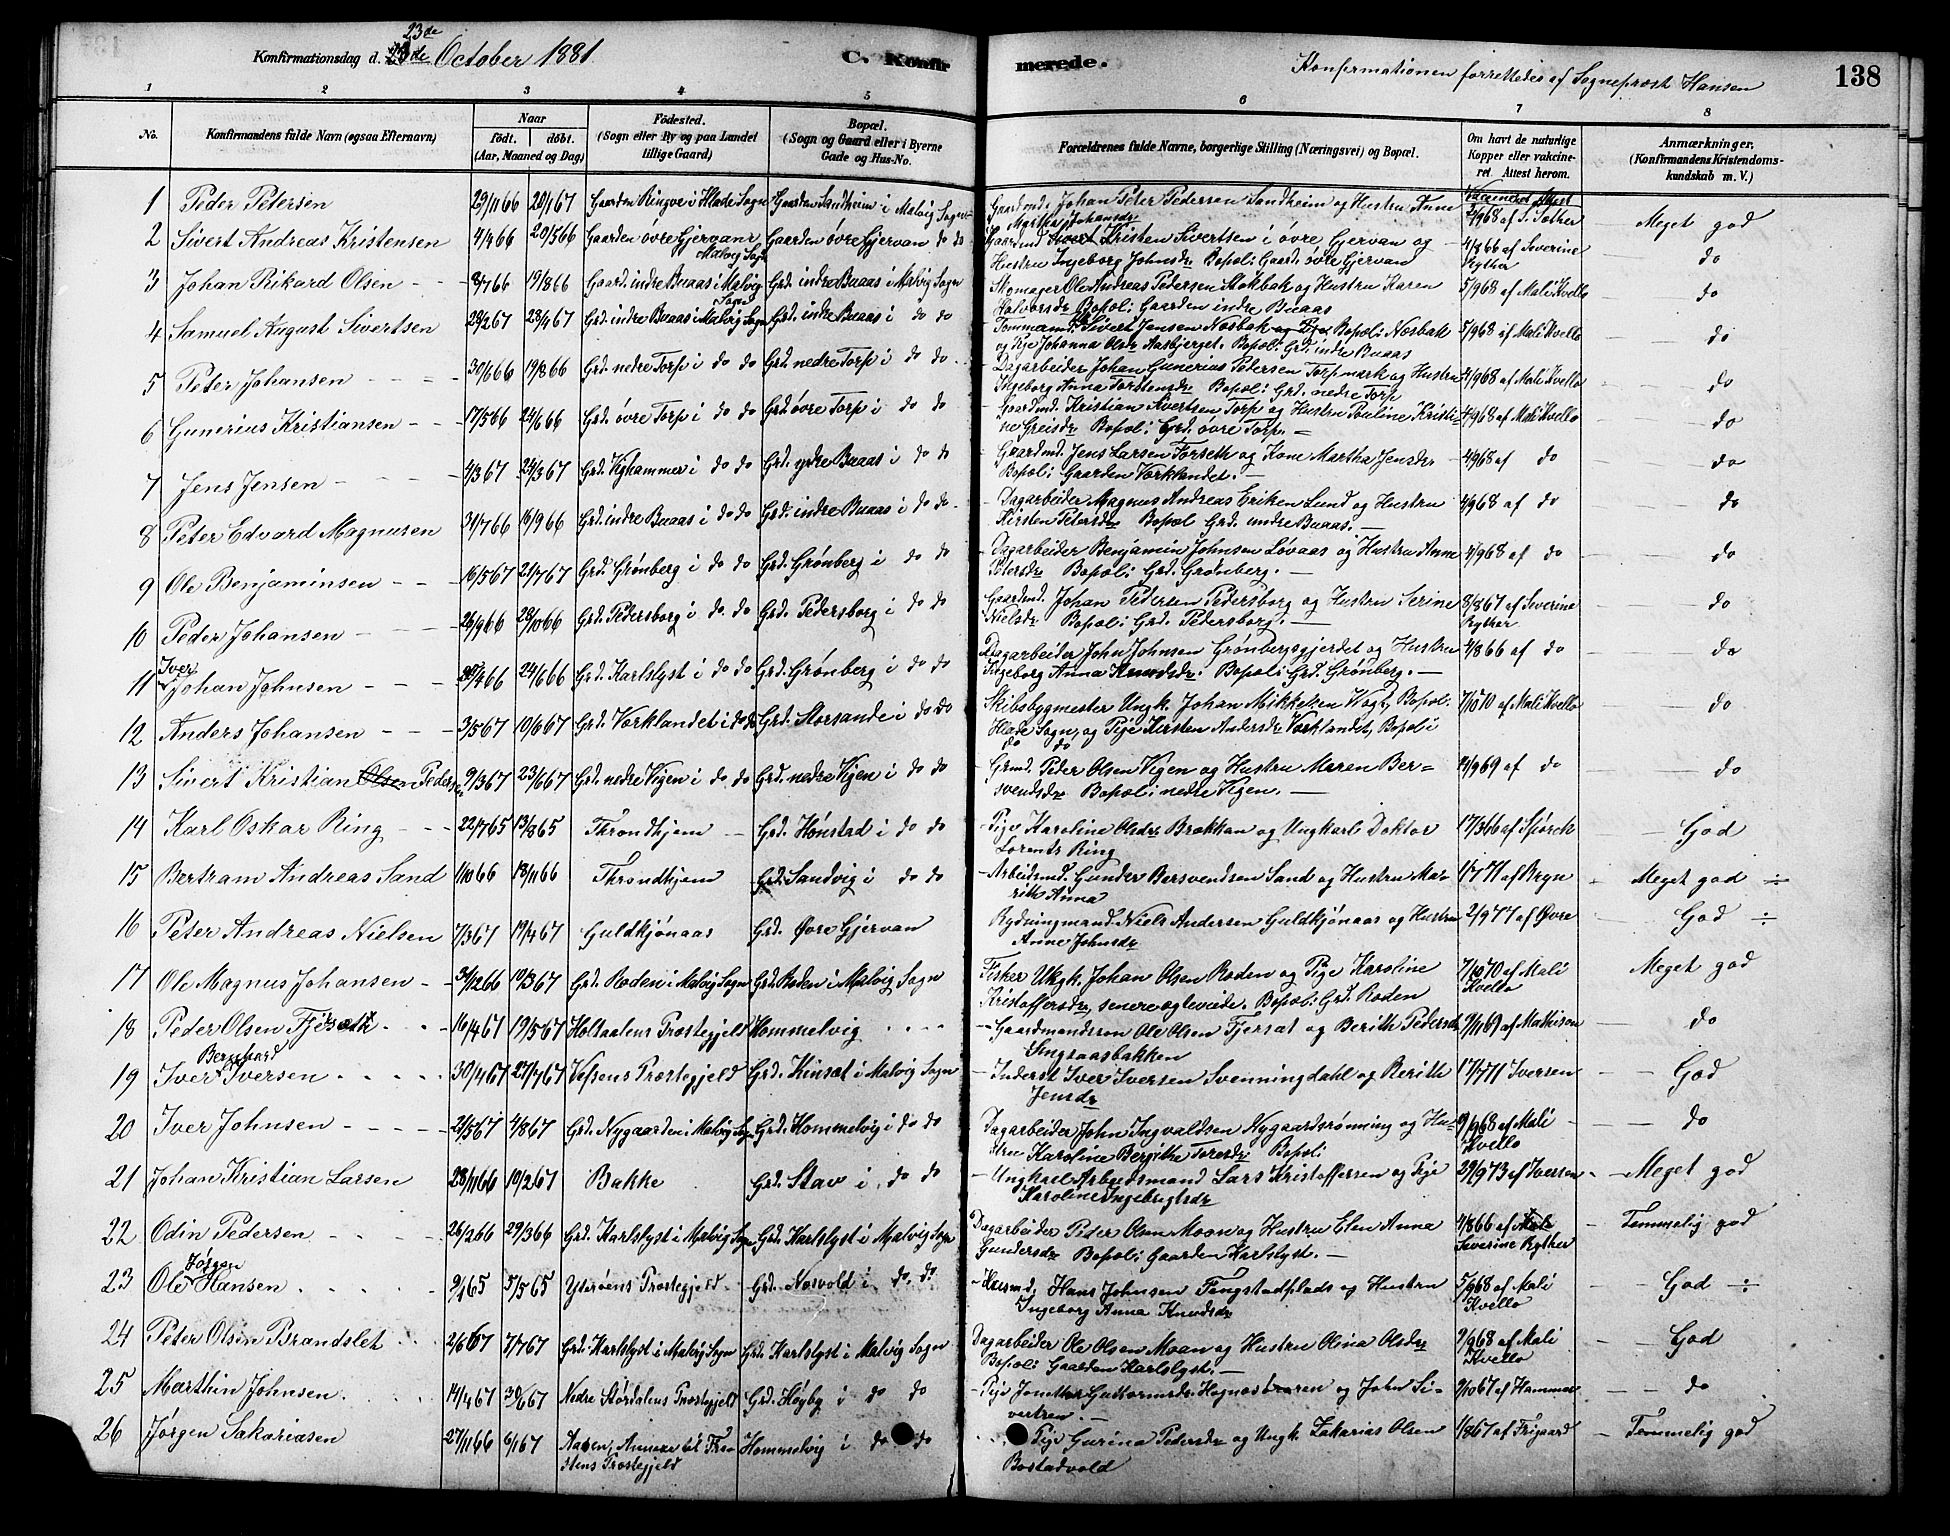 Konfirmationsdag d. 23de October 1881.
C. Konfirmerede.
Konfirmationen forrettedes af Sogneprest Hansen
138
1 2 3 4 5 6 7 8
No.
Konfirmandens fulde Navn (ogsaa Efternavn)
Naar
født. døbt.
(Aar, Maaned og Dag)
Fødested.
(Sogn eller By og paa Landet
tillige Gaard)
Bopæl.
(Sogn og Gaard eller i Byerne
Gade og Hus-No.
Forældrenes fulde Navne, borgerlige Stilling (Næringsvei) og Bopæl.
Om havt de naturlige
Kopper eller vakcine-
ret. Attest herom.
Anmærkninger.
(Konfirmandens Kristendoms-
kundskab m. V.)
1 Peder Petersen 29/11 66 20/1 67 Gaarden Ringve i Hlade Sogn Gaarden Sandheim i Malvig Sogn Gaardmd. Johan Peter Pedersen Sandheim og Hustru Anne
Martha Johansdr 2/9 68 af S. Sother Meget god
2 Sivert Andreas Kristensen 4/4 66 20/5 66 Gaarden øvre Gjervan Malvig Sogn Gaarden øvre Gjervan do do Gaardmd. Kristen Sivertsen i øvre Gjervan og
Hustru Ingeborg Johnsdr Bopæl: Gaard. øvre Gjervan 4/8 66 af Severine Ryther do
3 Johan Rikard Olsen 8/7 66 19/8 66 Gaard. indre Buaas i Malvig Sogn Grd. indre Buaas i Malvig Sogn Skomager Ole Andreas Pedersen Stokbak og Hustru Karen
Halvorsdr Bopæl: Gaarden indre Buaas 5/9 68 af Mali Kvello do
4 Samuel August Sivertsen 28/2 67 28/4 67 Grd. indre Buaas i Malvig Sogn Grd. indre Buaas i do do Tømmermd. Sivert Jensen Næsbak Bopæl: Næsbak
og Pige Johanna Olsdr Aasbjerget. Bopæl: Grd. indre Buaas 5/9 68 af Mali Kvello do
5 Peter Johansen 30/6 66 19/8 66 Grd. nedre Torp i do do Grd. nedre Torp i do do Dagarbeider Johan Gunerius Pedersen Torpmark og Hustru
Ingeborg Anna Torstensdr Bopæl: Grd. nedre Torp 4/9 68 af Mali Kvello do
6 Gunerius Kristiansen 17/5 66 24/6 66 Grd. øvre Torp i do do Grd øvre Torp i do do Gaardmd. Kristian Sivertsen Torp og Hustru Pauline Kristi-
ne Greisdr Bopæl: Grd. øvre Torp. 4/9 68 af Mali Kvello do
7 Jens Jensen 4/3 67 24/3 67 Grd. Vighammer i do do Grd. ydre Buaas i do do Gaardmd. Jens Larsen Forseth og Kone Martha Jensdr
Bopæl: Gaarden Vorklandet. 4/9 68 af do do
8 Peter Edvard Magnusen 31/7 66 16/9 66 Grd. indre Buaas i do do Grd. indre Buaas i do do Dagarbeider Magnus Andreas Eriksen Lund og Hustru
Kirsten Petersdr Bopæl Grd. indre Buaas. 4/9 68 af do do
9 Ole Benjaminsen 16/5 67 21/7 67 Grd. Grønberg i do do Grd. Grønberg i do do Dagarbeider Benjamin Johnsen Løvaas og Hustru Anne
Petersdr Bopæl: Grd. Grønberg. 4/9 68 af do do
10 Peder Johansen 26/9 66 28/10 66 Grd. Pedersborg i do. do Grd. Pedersborg i do do Gaardmd. Johan Pedersen Pedersborg og Hustru Serine
Nielsdr Bopæl: Grd. Pedersborg. 8/8 67 af Severine Ryther do
11 Iver Johan Johnsen 4 66 24/6 66 Grd. Karlslyst i do do Grd. Grønberg i do do Dagarbeider John Johnsen Grønbergsgjerdet og Hustru
Ingeborg Anna Knudsdr. Bopæl: Grd. Grønberg. 4/8 66 af do do
12 Anders Johansen 3/5 67 10/6 67 Grd. Vorklandet i do do Grd. Storsande i do do Skibsbygmester Ungk. Johan Mikkelsen Wogt, Bopæl:
Hlade Sogn, og Pige Kirsten Andersdr Vorklandet, Bopæl i
do do 7/10 70 af Mali Kvello do
13 Sivert Kristian Olsen Pedersen 9/3 67 23/6 67 Grd. nedre Vigen i do do Grd. nedre Vigen i do do Grmd. Peder Olsen Vigen og Hustru Maren Ber-
svendsdr Bopæl: nedre Vigen. 2/9 69 af do do
14 Karl Oskar Ring 22/7 65 13/8 65 Throndhjem Grd. Hønstad i do do Pige Karoline Olsdr Brækkan og Ungkarl Doktor
Lorents Ring 17/3 66 af Spørck God
15 Bertram Andreas Sand 1/10 66 18/11 66 Throndhjem Grd. Sandvig i do do Arbeidsmd. Gunder Bersvendsen Sand og Hustru Ma-
rith Anna 1/7 71 af Bryn Meget god ÷
16 Peter Andreas Nielsen 7/3 67 19/4 67 Guldkjønaas Grd. Øvre Gjervan Rydningmand Niels Andersen Guldkjønaas og Hustru
Anne Johnsdr 2/9 77 af Øvre God ÷
17 Ole Magnus Johansen 31/12 66 10/3 67 Grd. Roden i Malvig Sogn Grd. Roden i Malvig Sogn Fisker Ungk. Johan Olsen Roden og Pige Karoline
Kristoffersdr, senere ægteviede. Bopæl: Grd. Roden 7/10 70 af Mali Kvello Meget god
18 Peder Olsen Fjesæth 16/4 67 19/5 67 Holtaalens Præstegjeld Hommelvig Gaardmandssøn Ole Olsen Fjersæt og Berith Pedersdr
Singsaasbakken 9/11 67 af Mathison do
19 Iver Bernhard Iversen 30/4 67 27/7 67 Vefsens Præstegjeld Grd. Kinsæt i Malvig Sogn Inderst Iver Iversen Svenningdahl og Berith
Jensdr 17/7 71 Iversen God
20 Iver Johnsen 21/5 67 4/8 67 Grd. Nygaarden i Malvig Sogn Grd. Hommelvig i do do Dagarbeider John Ingvaldsen Nygaardsrønning og Hu-
stru Karoline Bergithe Toresdr Bopæl: 9/9 68 af Mali Kvello do
21 Johan Kristian Larsen 28/11 66 10/2 67 Bakke Grd. Stav i do do Ungkarl Arbeidsmand Lars Kristoffersen og Pige
Karoline Ingebrigtsdr 29/9 73 af Iversen Meget god
22 Odin Pedersen 26/2 66 29/3 66 Grd. Karlslyst i Malvig Sogn Grd. Karlslyst i Malvig Sogn Dagarbeider Peder Olsen Moan og Hustru Elen Anna
Gundersdr Bopæl: Gaarden Karlslyst. 4/8 66 af Severine Ryther Temmelig god
23 Ole Jørgen Hansen 9/1 65 5/5 65 Ytterøens Præstegjeld Grd. Næsvold i do. do. Husmd. Hans Johnsen Fengstadplads og Hustru
Ingeborg Anna Knudsdr 5/9 68 af Mali Kvello God ÷
24 Peter Olsen Brandslet 2/6 67 7/7 67 Grd. Karlslyst i Malvig Sogn Grd. Karlslyst i Malvig Sogn Dagarbeider Ole Olsen Moan og Hustru Olina Olsdr
Bopæl: Gaarden Karlslyst. 9/9 68 af Mali Kvello God
25 Marthin Johnsen 14/4 67 30/6 67 Nedre Størdalens Præstegjeld Grd. Høyby i do do Pige Guttormsdr Hognæs og John Si-
vertsen. 9/10 67 af Hammer do
26 Jørgen Sakariasen 27/11 66 6/1 67 Aasen, Annex til Fro-
stens Præstegjeld Hommelvig i do do Pige Gurina Pedersdr og Ungk. Zakarias Olsen
Bostadvold 1/8 67 af Frigaard Temmelig god